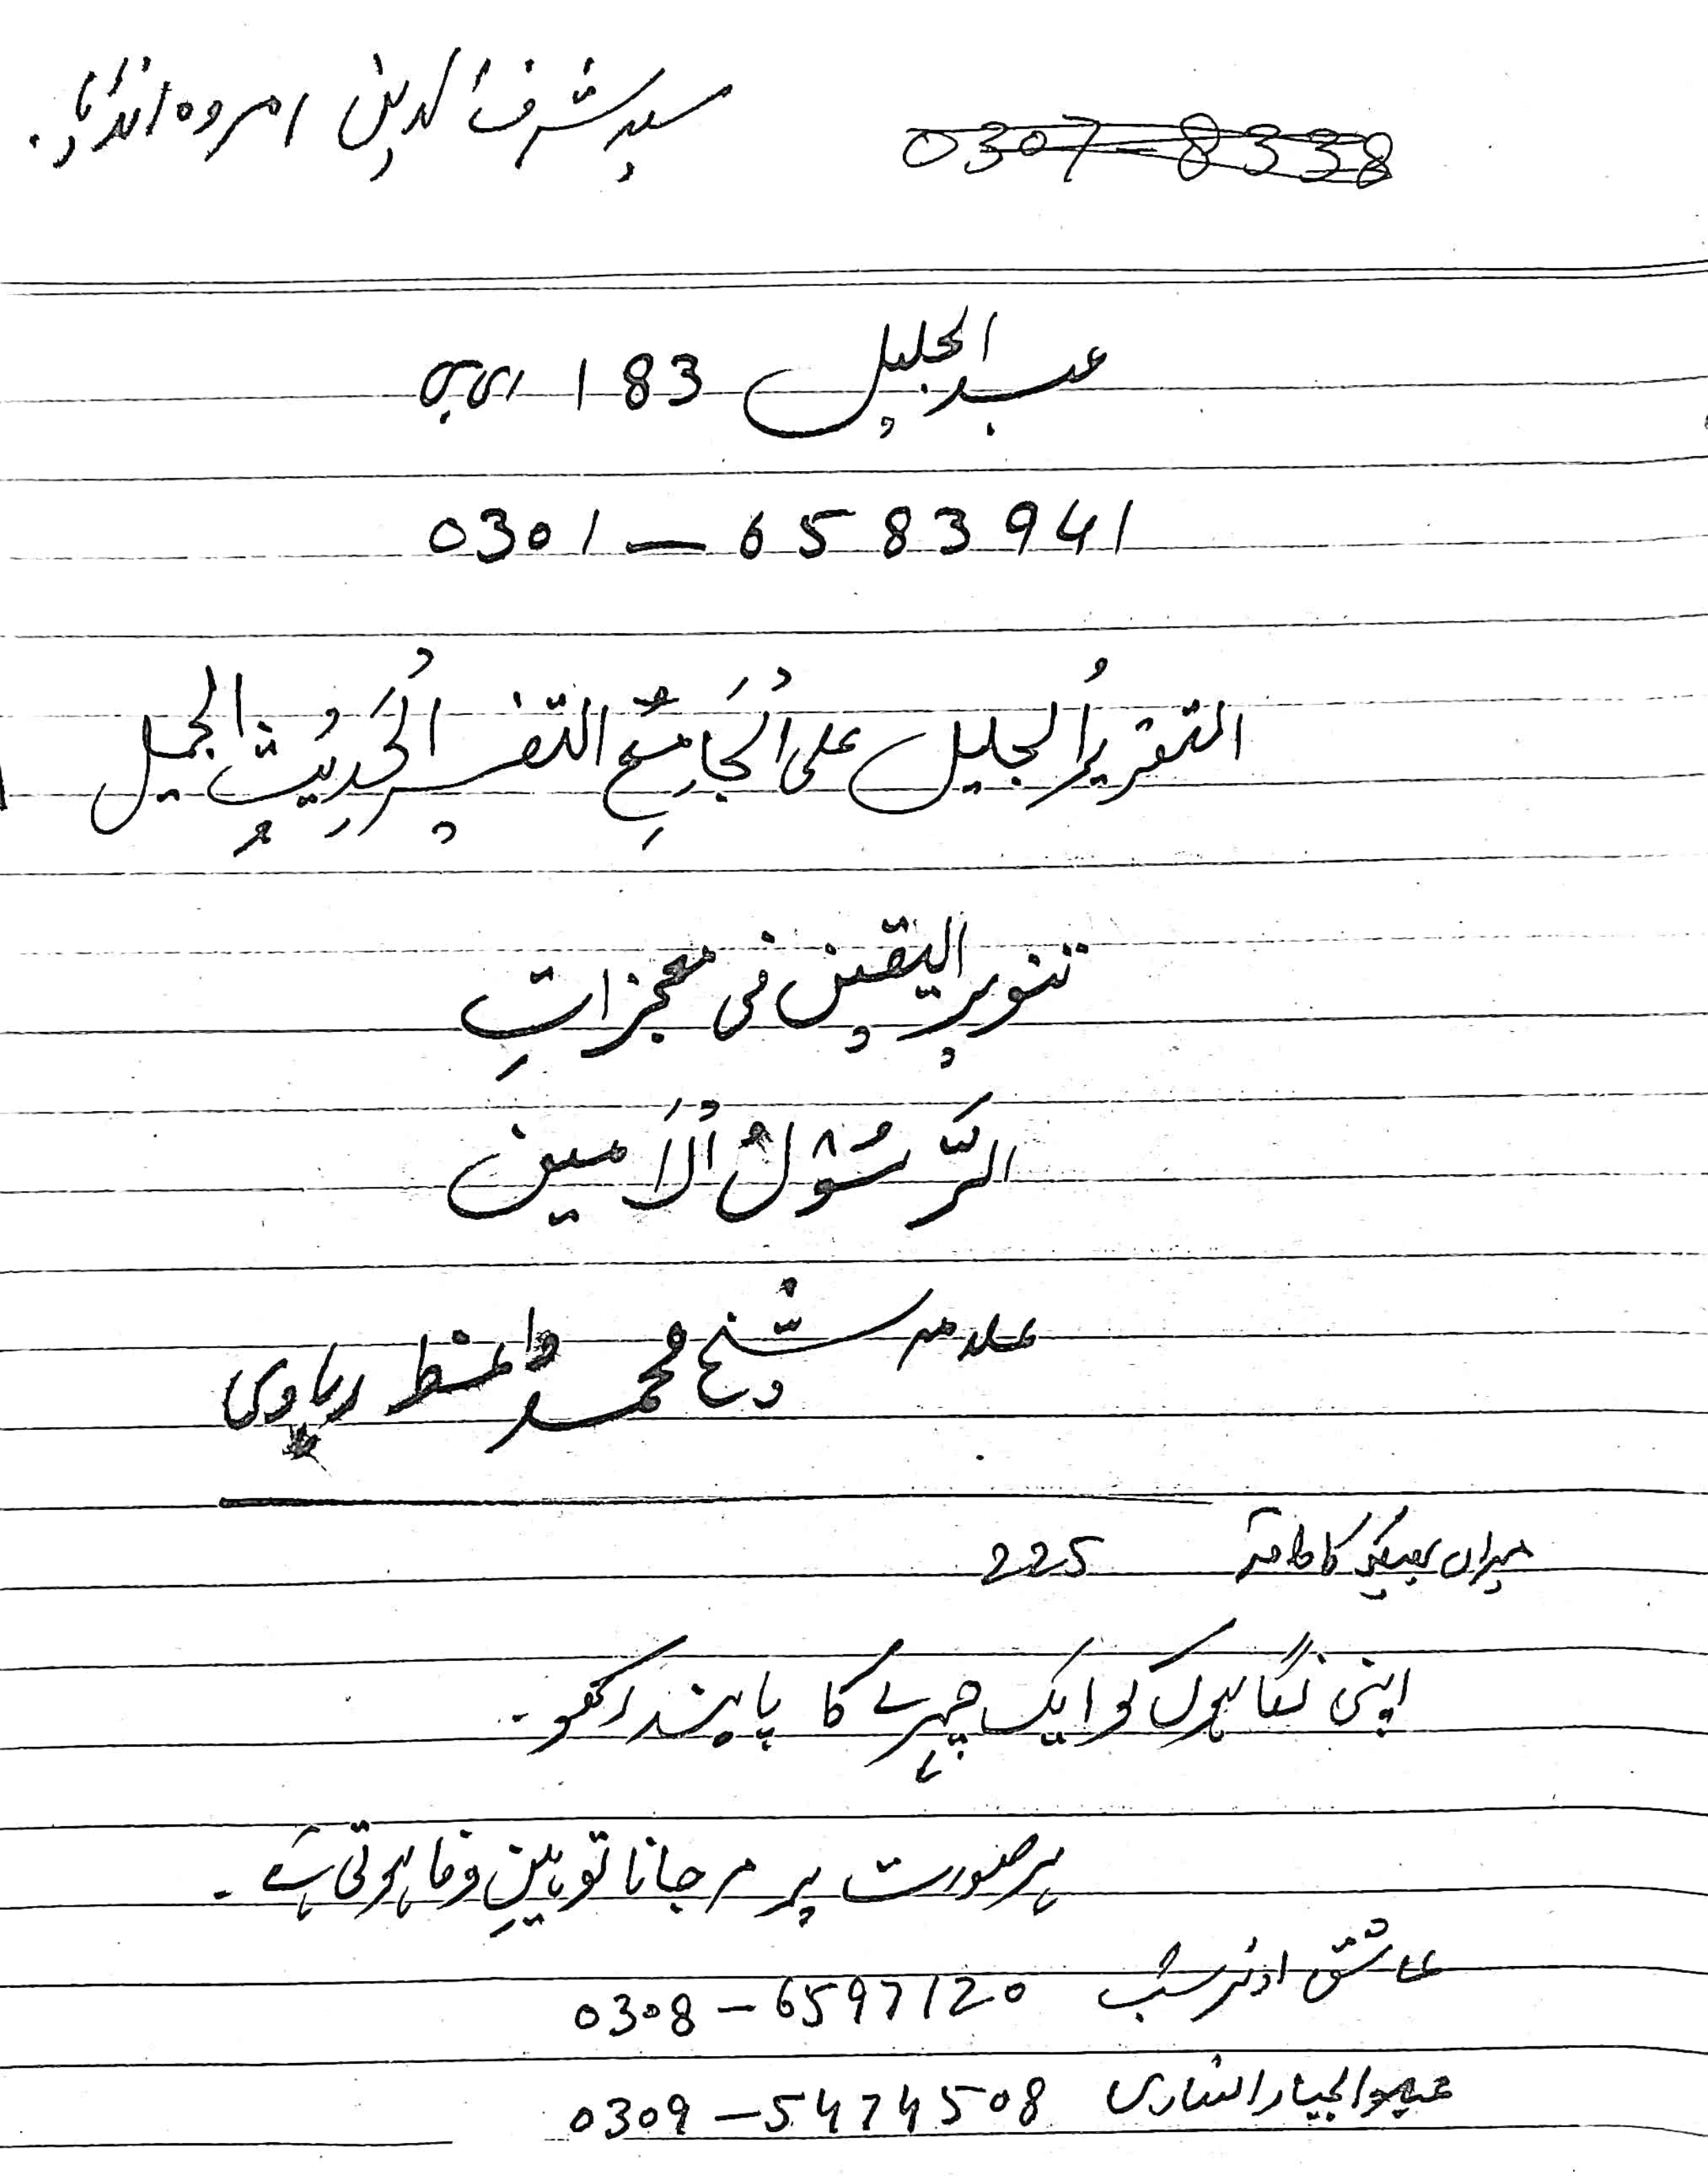 سید شرف الدین امروہ انڈیا.
0307-8338
عبد الجلیل 183 ای بی
0301 - 6583941
التقریرُ الجلیل علی الْجَامِعِ التفسیر الْحَدِیْثِ الجمیل
تنویر الیقین فی معجزاتِ
الرَّسُوْلُ الْاَمین
علامہ شیخ محمد واعظ رہاوی
میراں بھیکھ کا 225
اپنی نگاہوں کو ایک چہرے کا پابند رکھو۔
ہر صورت پر مر جانا توہینِ وفا ہوتی ہے۔
عاشق 0308 - 6597120
عبدالجبار انصاری 0309 - 5474508